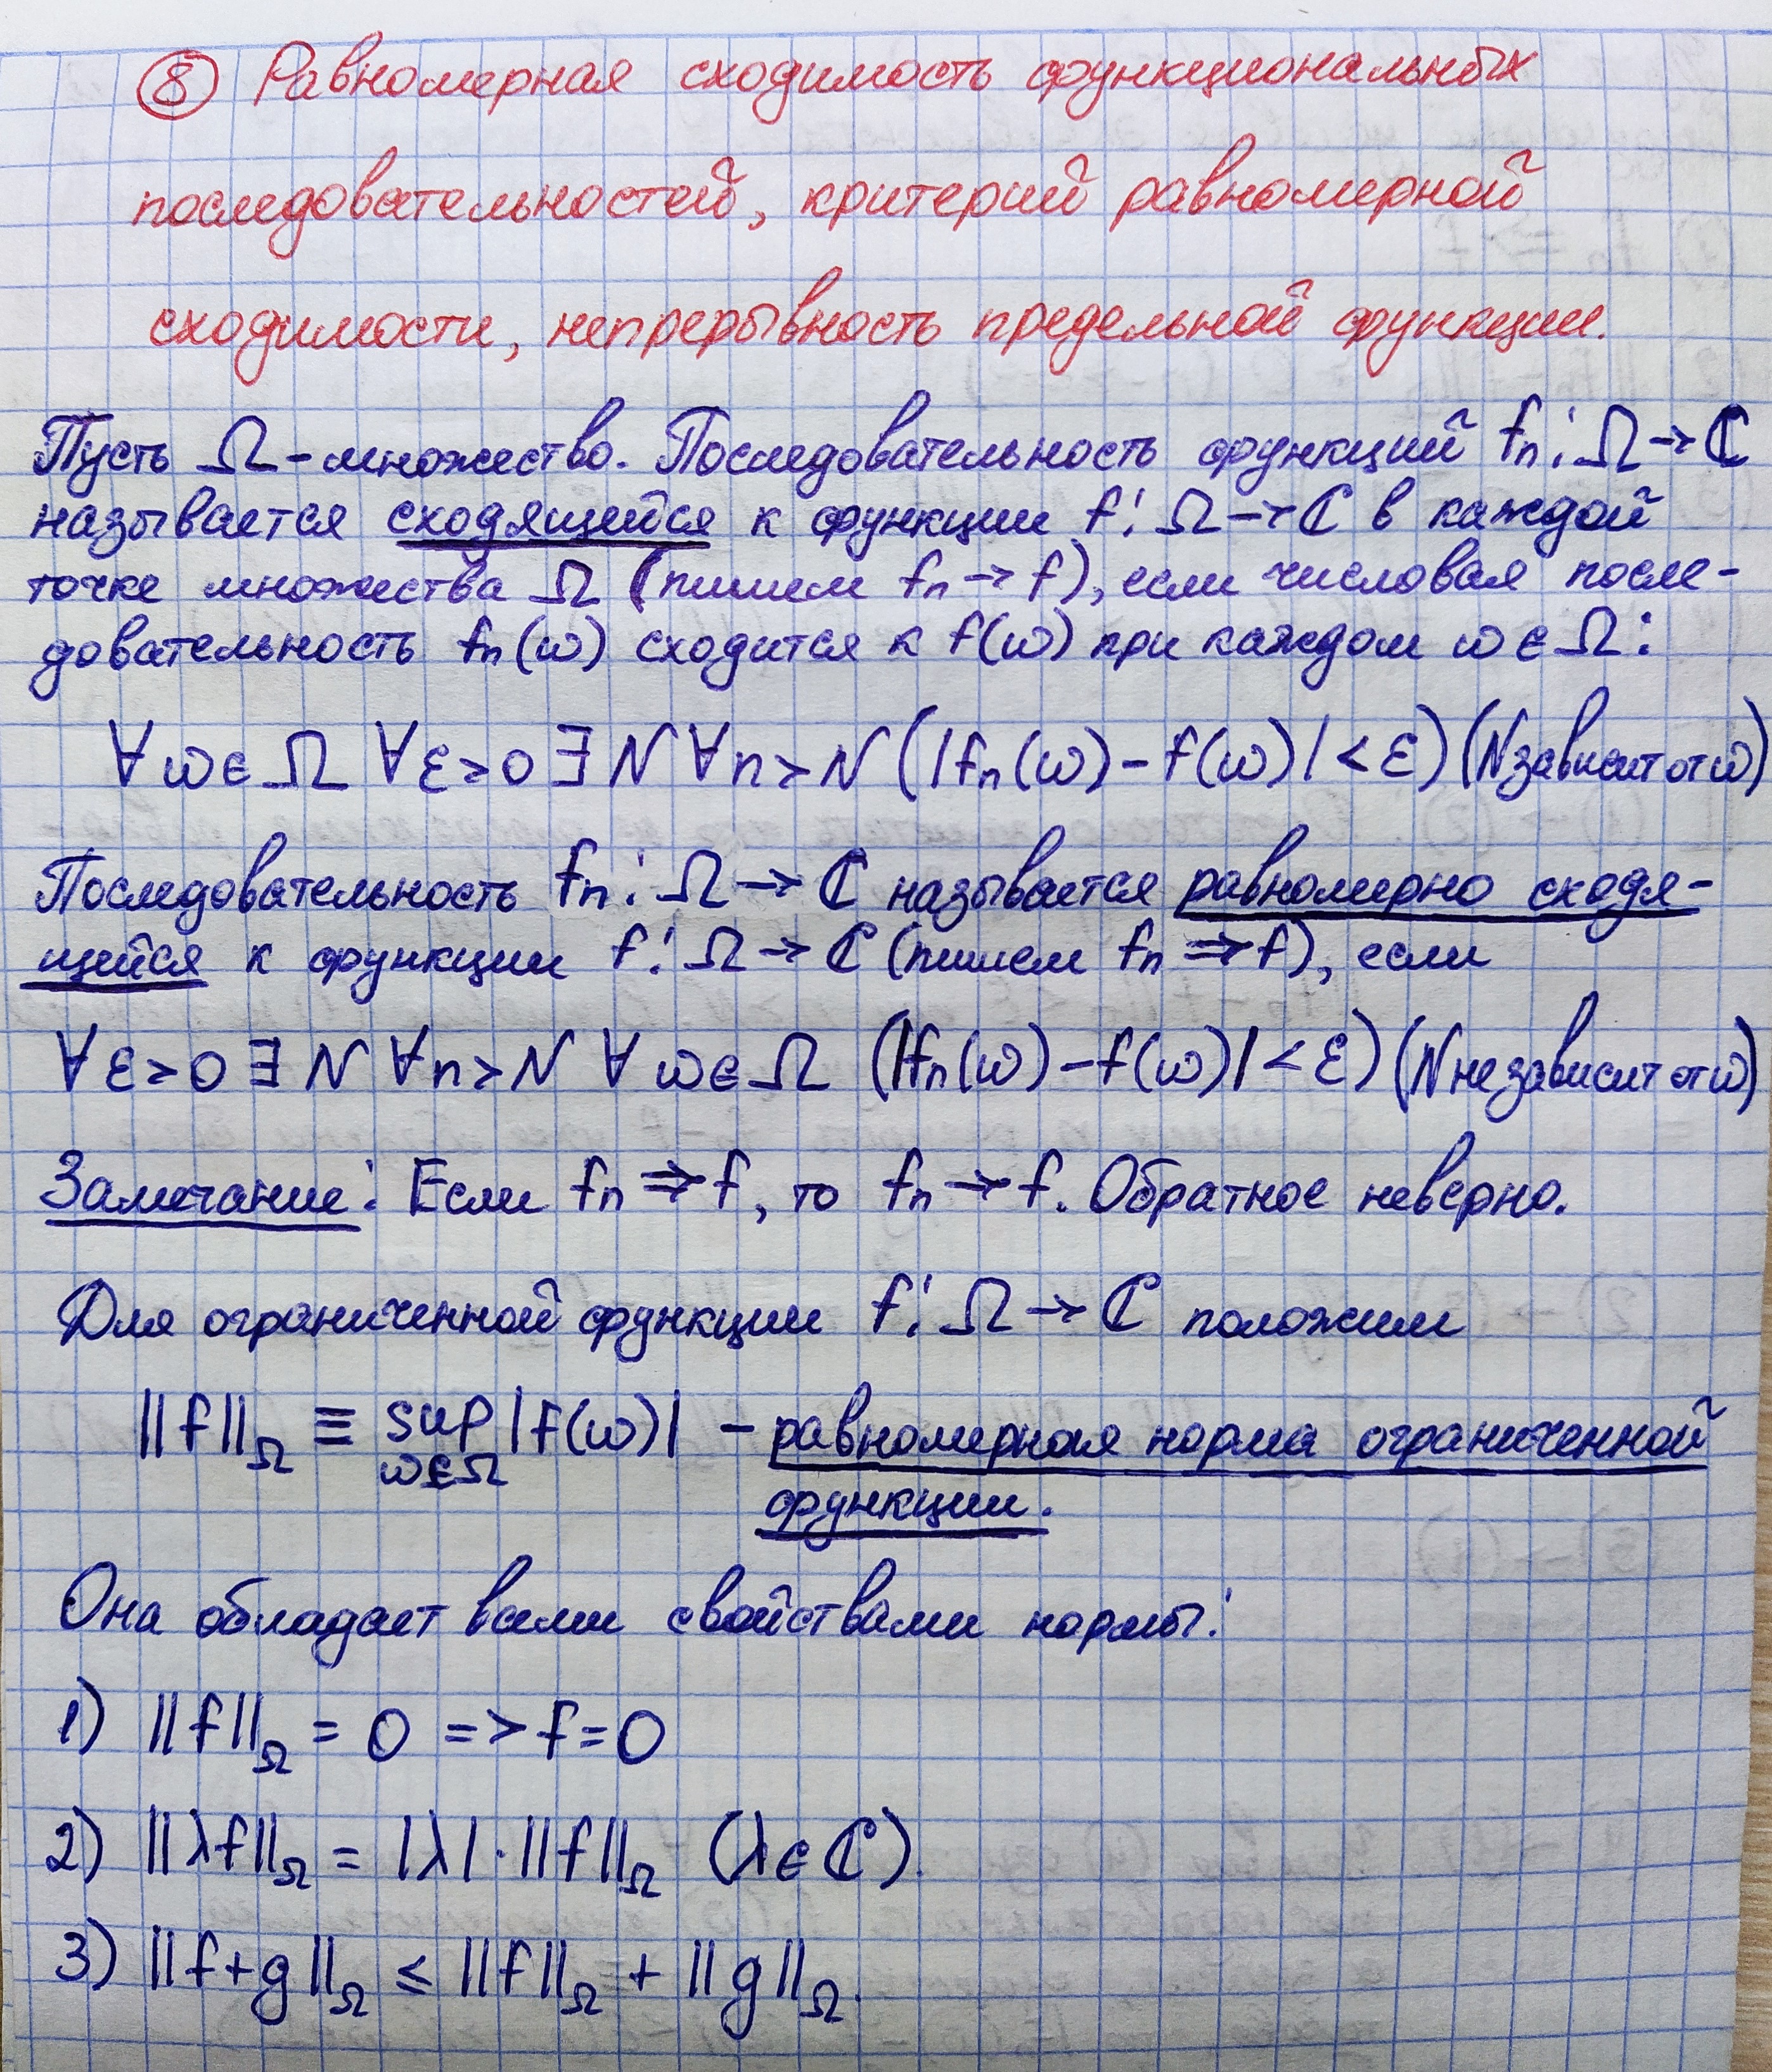 ⑧ Равномерная сходимость функциональных
последовательностей, критерий равномерной
сходимости, непрерывность предельной функции.
Пусть Ω – множество. Последовательность функций fₙ: Ω → ℂ
называется сходящейся к функции f: Ω → ℂ в каждой
точке множества Ω (пишем fₙ → f), если числовая после-
довательность fₙ(ω) сходится к f(ω) при каждом ω ∈ Ω:
∀ω∈Ω ∀ε>0 ∃N ∀n>N (|fₙ(ω) – f(ω)| < ε) (N зависит от ω)
Последовательность fₙ: Ω → ℂ называется равномерно сходя-
щейся к функции f: Ω → ℂ (пишем fₙ ⇒ f), если
∀ε>0 ∃N ∀n>N ∀ω∈Ω (|fₙ(ω) – f(ω)| < ε) (N не зависит от ω)
Замечание: Если fₙ ⇒ f, то fₙ → f. Обратное неверно.
Для ограниченной функции f: Ω → ℂ положим
||f||_Ω ≡ sup |f(ω)| – равномерная норма ограниченной
ω∈Ω
функции.
Она обладает всеми свойствами нормы:
1) ||f||_Ω = 0 => f = 0
2) ||λf||_Ω = |λ|·||f||_Ω (λ∈ℂ).
3) ||f+g||_Ω ≤ ||f||_Ω + ||g||_Ω.